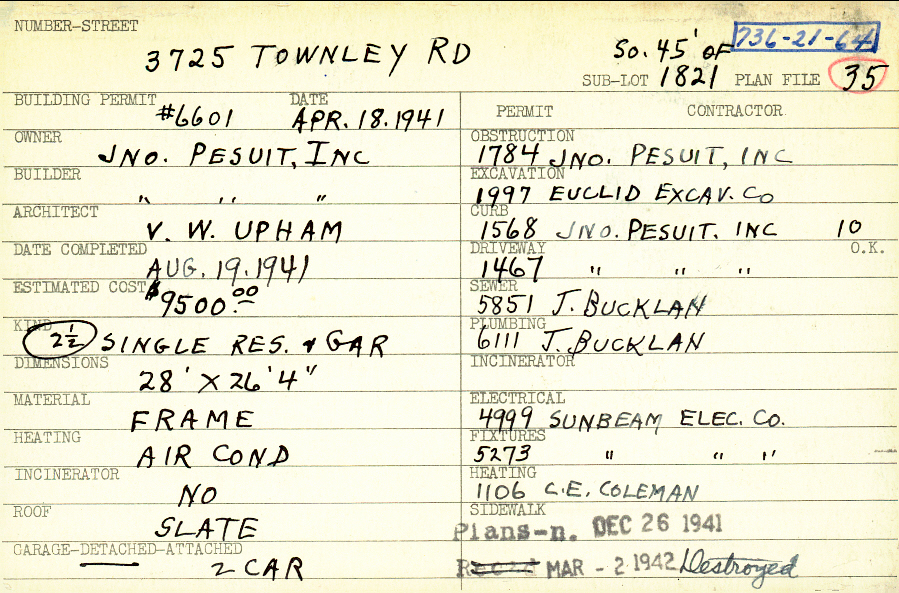 NUMBER-STREET
3725 TOWNLEY RD
So. 45' OF 736-21-64
SUB-LOT 1821 PLAN FILE 35
BUILDING PERMIT DATE
#6601 APR. 18. 1941
OWNER
JNO. PESUIT, INC
BUILDER
" " "
ARCHITECT
V. W. UPHAM
DATE COMPLETED
AUG. 19. 1941
ESTIMATED COST
$9500.00
KIND
2½ SINGLE RES. & GAR
DIMENSIONS
28' X 26' 4"
MATERIAL
FRAME
HEATING
AIR COND
INCINERATOR
NO
ROOF
SLATE
GARAGE-DETACHED-ATTACHED
2 CAR
PERMIT CONTRACTOR
OBSTRUCTION
1784 JNO. PESUIT, INC
EXCAVATION
1997 EUCLID EXCAV. Co
CURB
1568 JNO. PESUIT. INC 10
DRIVEWAY O.K.
1467 " " "
SEWER
5851 J. BUCKLAN
PLUMBING
6111 J. BUCKLAN
INCINERATOR
ELECTRICAL
4999 SUNBEAM ELEC. Co.
FIXTURES
5273 " " "
HEATING
1106 C.E. COLEMAN
SIDEWALK
Plans-n. DEC 26 1941
Recd MAR - 2 1942 Destroyed